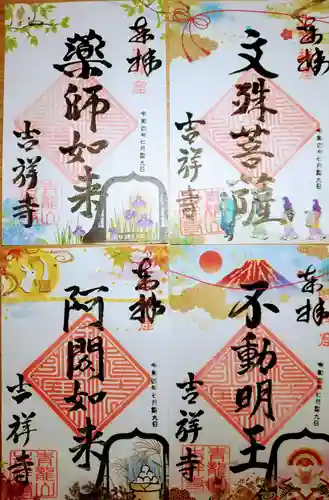 奉拝
令和四年七月
薬師如来
吉祥寺
青龍山
奉拝
令和四年七月
文殊菩薩
吉祥寺
青龍山
奉拝
令和四年七月
阿閦如来
吉祥寺
青龍山
奉拝
令和四年七月
不動明王
吉祥寺
青龍山